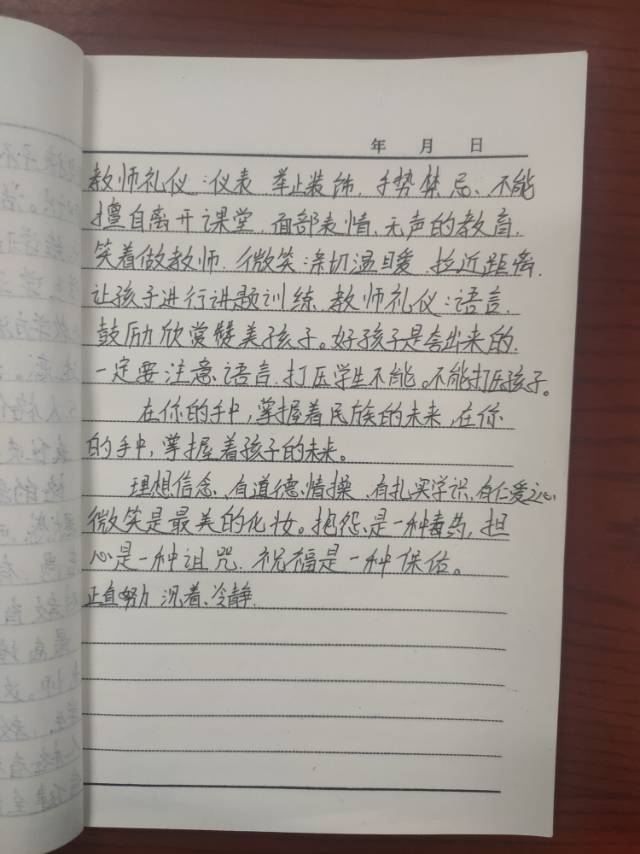 年 月 日
教师礼仪:仪表 举止装饰,手势禁忌、不能
擅自离开课堂,面部表情,无声的教育,
笑着做教师,微笑:亲切温暖,拉近距离,
让孩子进行讲题训练,教师礼仪:语言,
鼓励欣赏赞美孩子。好孩子是夸出来的,
一定要注意语言,打压学生不能。不能打压孩子。
在你的手中,掌握着民族的未来,在你
的手中,掌握着孩子的未来。
理想信念,有道德情操,有扎实学识,有仁爱之心,
微笑是最美的化妆。抱怨是一种毒药,担
心是一种诅咒,祝福是一种保佑。
正直努力 沉着、冷静.